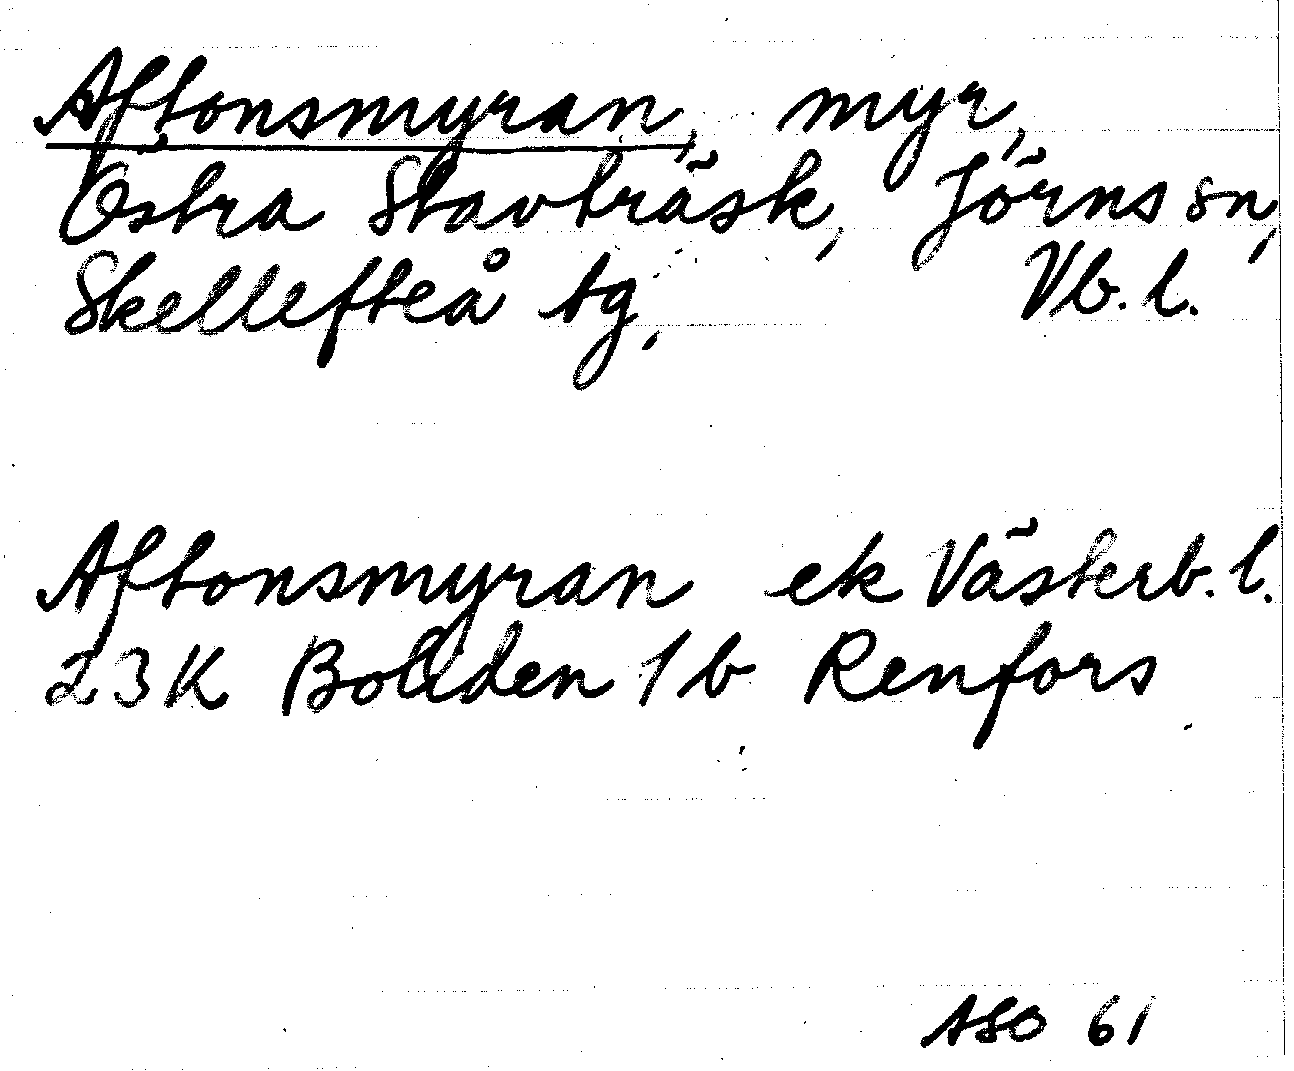 Aftonsmyran, myr,
Östra Stavträsk, Jörns sn,
Skellefteå tg, Vb. l.
Aftonsmyran ek Västerb. l.
23K Boliden 1b Renfors
ASO 61